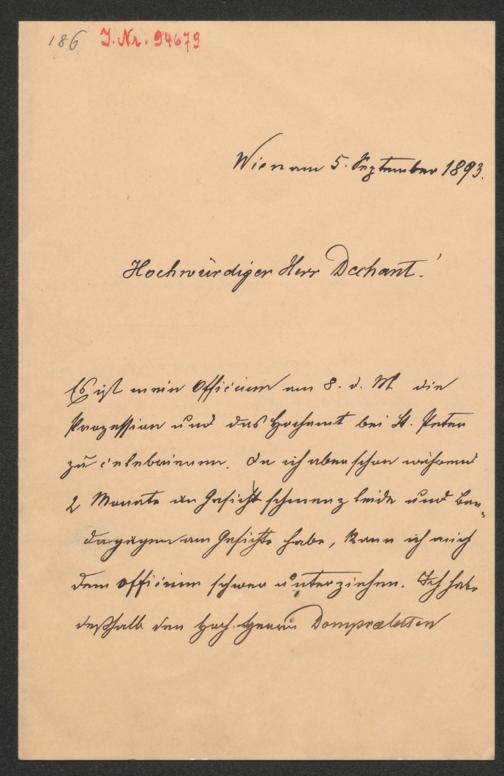 186 J. Nr. 94679
Wien am 5. September 1893.
Hochwürdiger Herr Dechant!
Es ist mein Officium am 8. d. M. die
Prozession und das Hochamt bei St. Peter
zu celebrieren. Da ich aber schon während
2 Monate an Gesichtschmerz leide und Ban-
dagen am Gesichte habe, kann ich mich
dem Officium schwer unterziehen. Ich habe
deßhalb den Hoch. Herrn Domprälaten